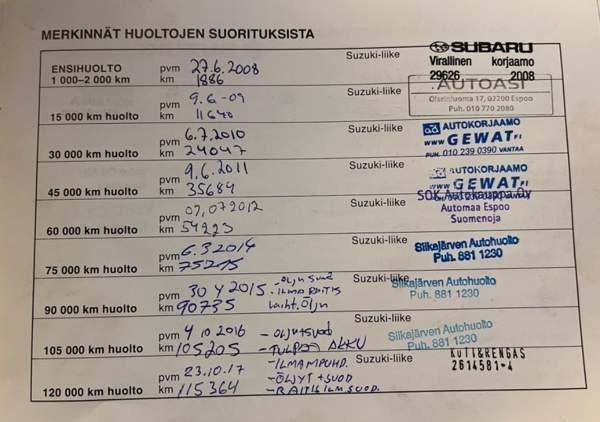 MERKINNÄT HUOLTOJEN SUORITUKSISTA
ENSIHUOLTO pvm 27.6.2008 Suzuki-liike SUBARU
1 000–2 000 km km 1886 Virallinen korjaamo
29626 2008
15 000 km huolto pvm 9.6-09 km 11640 Suzuki-liike AUTOASI
Olarinluoma 17, 02200 Espoo
Puh. 010 770 2080
30 000 km huolto pvm 6.7.2010 km 24047 Suzuki-liike ad AUTOKORJAAMO
www GEWAT.FI
PUH. 010 239 0390 VANTAA
45 000 km huolto pvm 9.6.2011 km 35684 Suzuki-liike AUTOKORJAAMO
www GEWAT.FI
60 000 km huolto pvm 07.07.2012 km 54223 Suzuki-liike SOK Autokauppa Oy
Automaa Espoo
Suomenoja
75 000 km huolto pvm 6.3.2014 km 75215 Suzuki-liike Siikajärven Autohuolto
Puh. 881 1230
90 000 km huolto pvm 30 4 2015 km 90735 -ILMA RAITIS Öljyn Suzuki-liike Siikajärven Autohuolto
Puh. 881 1230
105 000 km huolto pvm 4 10 2016 km 105205 -ÖLJY+SUOD -TULPAT AKKU Suzuki-liike Siikajärven Autohuolto
Puh. 881 1230
120 000 km huolto pvm 23.10.17 km 115364 -ILMANPUHD. -ÖLJYT+SUOD -RAITISILM.SUOD. Suzuki-liike KOTI&RENGAS
2614581-4